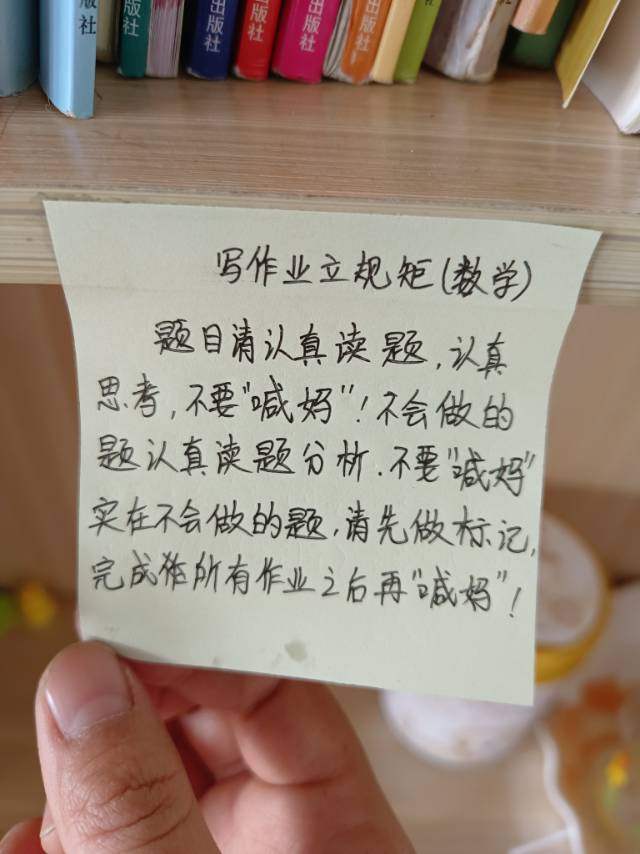 版社
出版社
出版社
出版社
出版社
出版社
写作业立规矩(数学)
题目请认真读题,认真
思考,不要"喊妈"!不会做的
题认真读题分析.不要"喊妈"
实在不会做的题,请先做标记,
完成所有作业之后再"喊妈"!